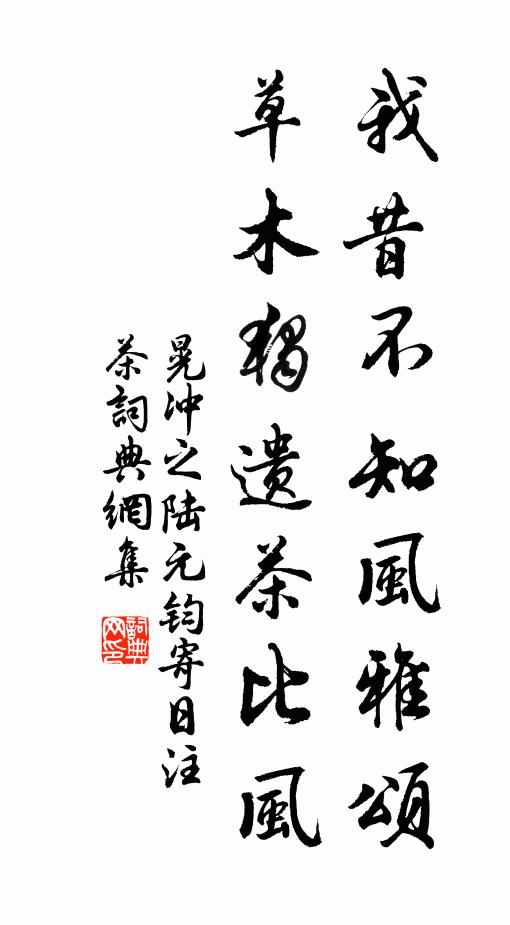 我昔不知風雅頌
草木獨遺茶比風
晁冲之陆元钧寄日注
茶詞典網集
詞典网印